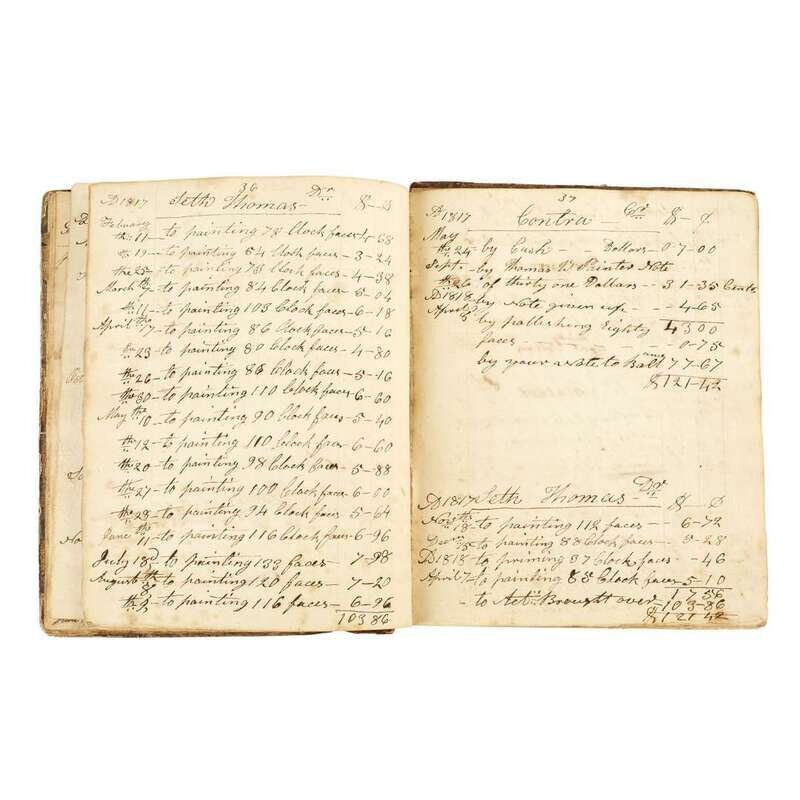 36
AD 1817 Seth Thomas Dr $ - ₵
February
th 11 - to painting 78 Clock faces 4-68
th 19 - to painting 54 Clock faces - 3-24
the 25 - to painting 73 Clock faces - 4-38
March th 7 - to painting 84 Clock faces - 5-04
th 11 - to painting 103 Clock faces - 6-18
April the 17 - to painting 86 Clock faces - 5-16
th 23 - to painting 80 Clock faces - 4-80
th 26 - to painting 86 Clock faces - 5-16
the 30 - to painting 110 Clock faces - 6-60
May the 10 - to painting 90 Clock faces - 5-40
th 12 - to painting 110 Clock faces - 6-60
th 20 - to painting 98 Clock faces - 5-88
th 27 - to painting 100 Clock faces - 6-00
th 28 - to painting 94 Clock faces - 5-64
June the 11 - to painting 116 Clock faces 6-96
July 18 - to painting 133 faces - 7-98
August th 8 - to painting 120 faces - 7-20
th 9 - to painting 116 faces - 6-96
103 86
37
AD 1817 Contra Cr $ - ₵
May
th 24 by Cash - - Dollars - 0 7-00
Sept. - by Thomas Note
of thirty one Dollars - - 31-35 Cents
AD 1818 by Note given up - - 4-65
April 43 00
by pollishing Eighty
faces - - 0-75
by your Note to ball 77-67
$121-42
AD 1817 Seth Thomas Dr $ - ₵
Nov th 18 - to painting 112 faces - - 6-72
25 - to painting 88 Clock faces - 5-28
AD 1818 - to priming 37 Clock faces - - 46
April 7 - to painting 85 Clock faces - 5-10
17 56
- to Act Brought over - 103-86
$121 42